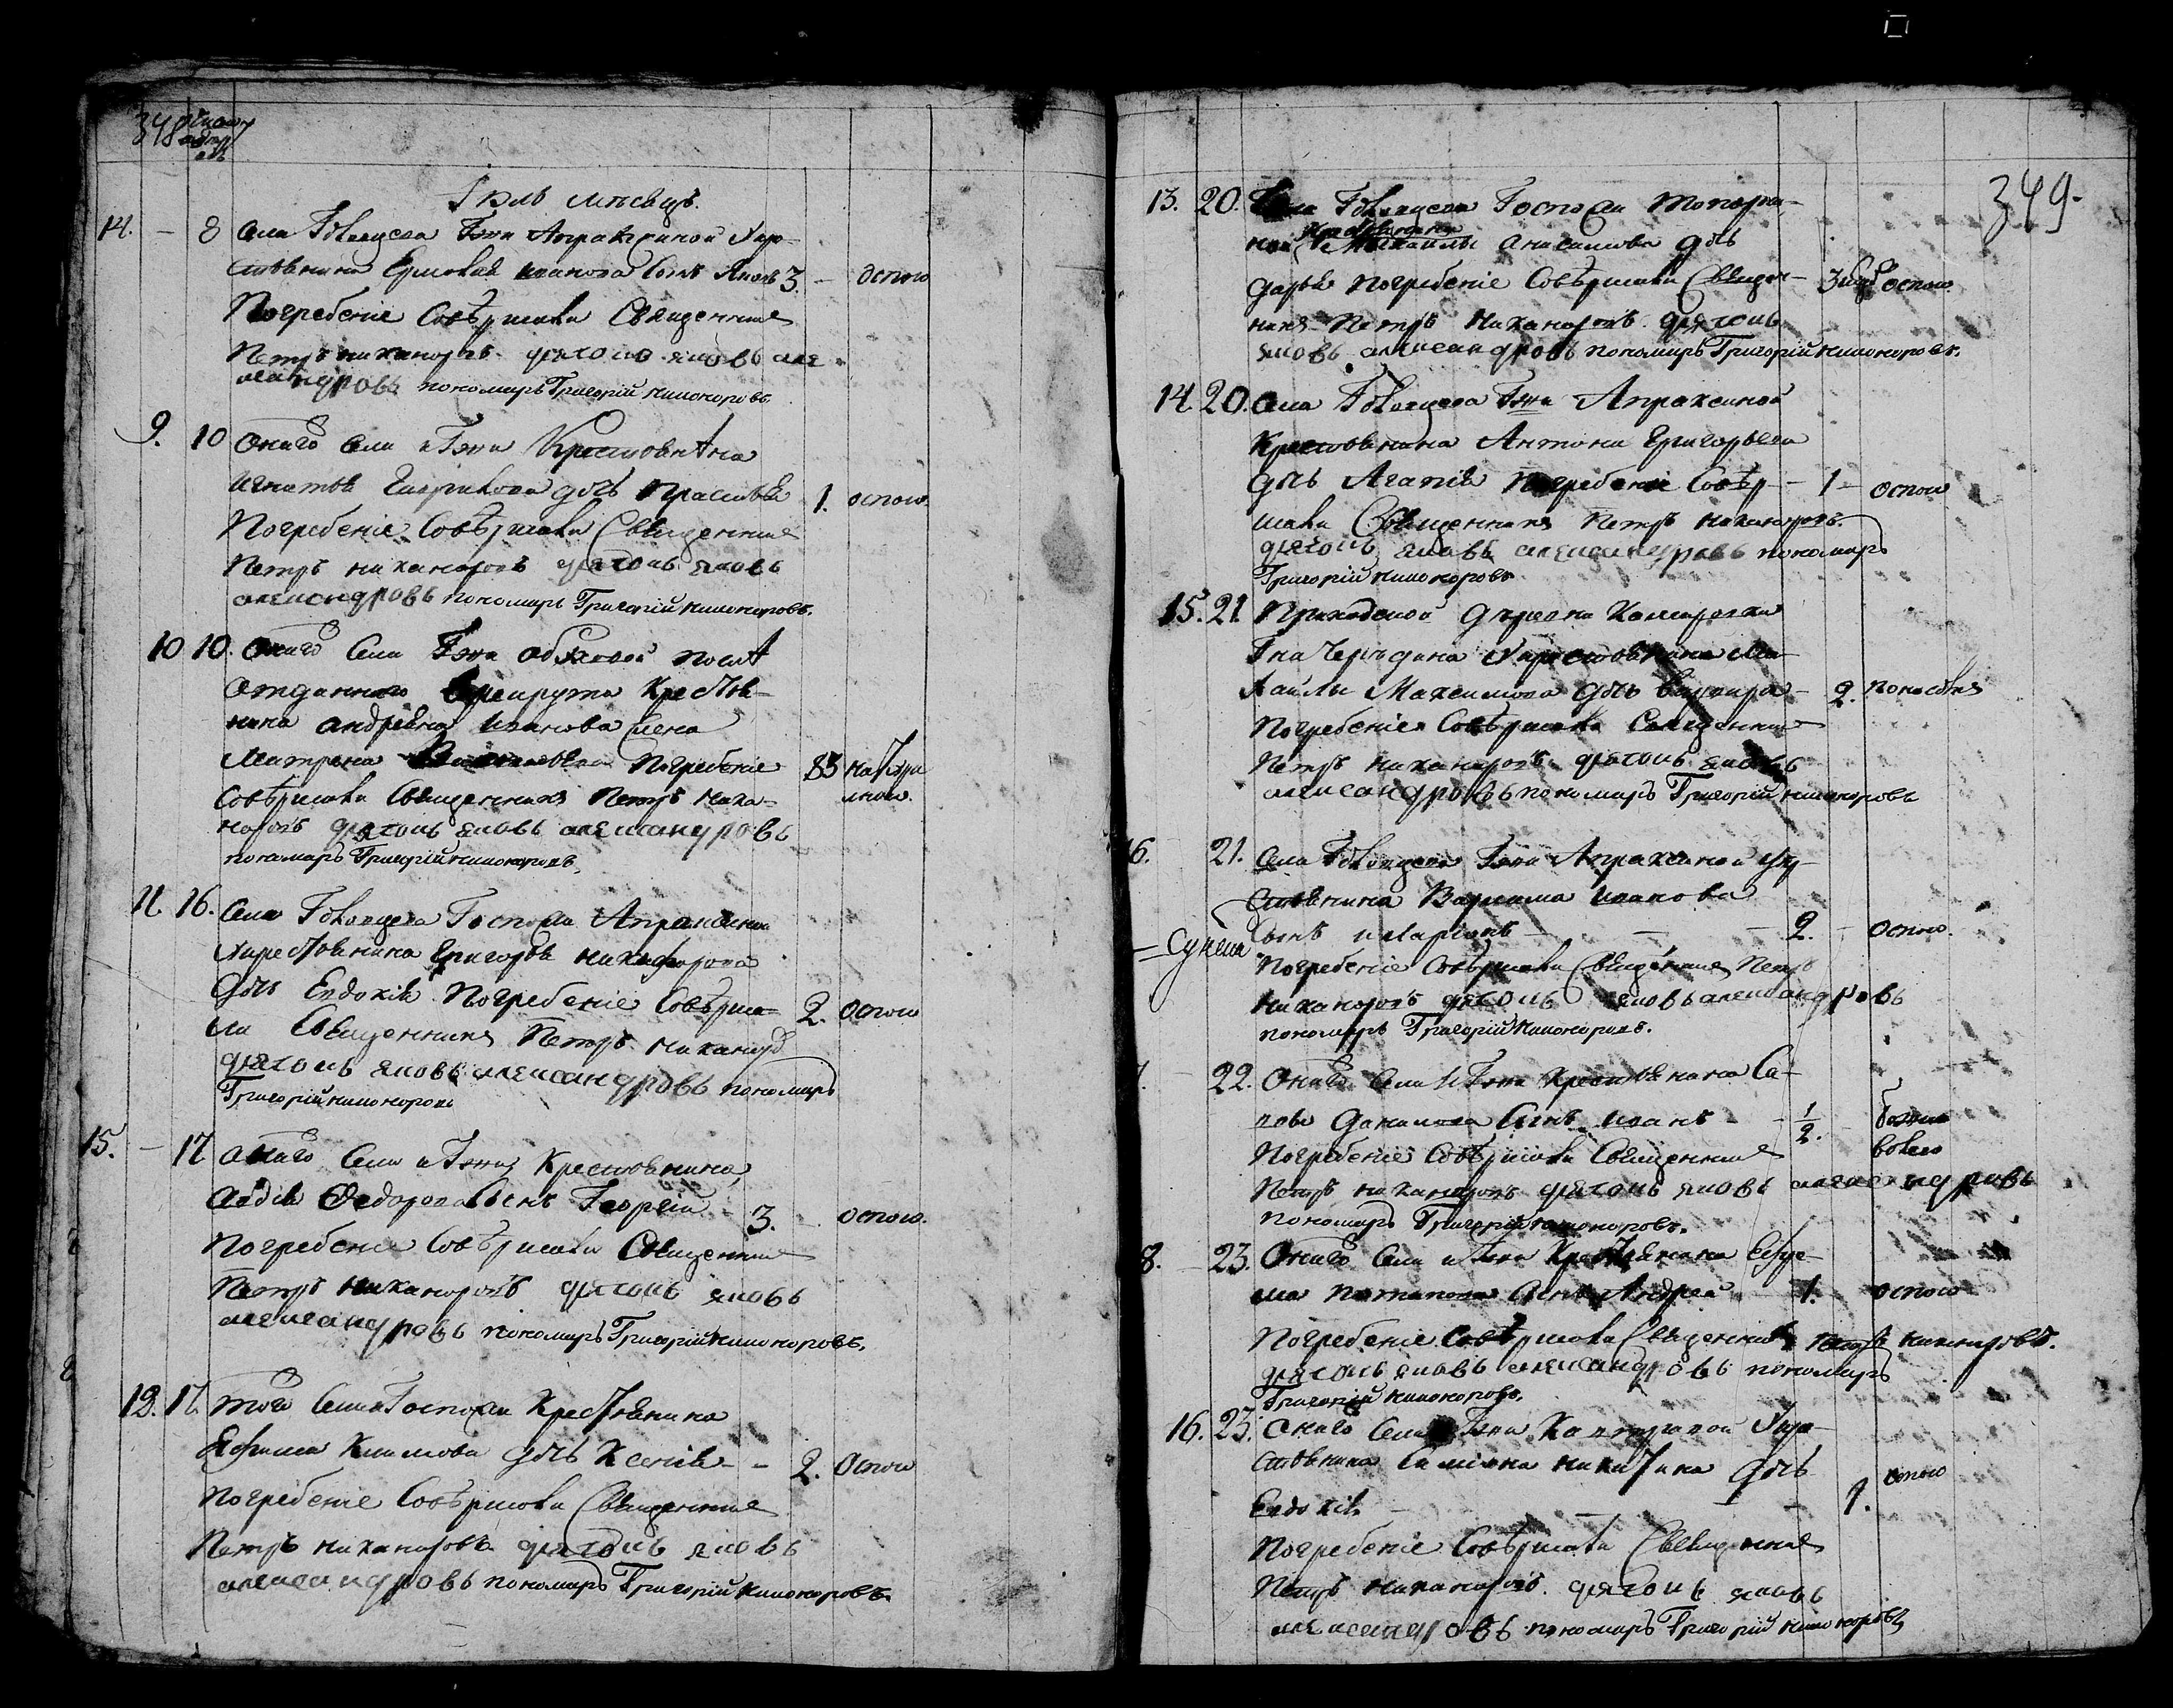 348
Іюль мѣсяцъ.
14. – 8 села Госпжи Апраксиной кре-
стьянина Ермолая Иванова сынъ Яковъ 3. – оспою
Погребеніе совѣршали священникъ
Петръ Никаноровъ діяконъ яковъ але
ксандровъ пономарь Григорій Никоноровъ
9. 10 Онаго села и Гжи Крестьянина
Игнатья Гаврилова дочь Прасковья 1. оспою.
Погребеніе совѣршали священникъ
Петръ Никаноровъ діяконъ яковъ
александровъ пономарь Григорій Никоноровъ.
10 10. Онаго села Гжи
отданнаго врекруты крестья-
нина Андреяна Иванова жена
Матрена погребеніе 83
совѣршали священникъ Петръ Ника-
норовъ діяконъ яковъ александровъ
пономарь Григорій Никоноровъ.
11. 16. села Госпожи Апраксиной
крестьянина Григорья Никифорова
дочь Евдокія Погребеніе совѣрша- 2. оспою
ли священникъ Петръ Никаноровъ
діяконъ яковъ александровъ пономарь
Григорій Никоноровъ
15. – 17 онаго села и Гжи Крестьянина
Авдея Федорова сынъ Георгій 3. оспою.
Погребеніе совѣршали священникъ
Петръ Никаноровъ діяконъ яковъ
александровъ пономарь Григорій Никоноровъ.
12. 17. того села Госпожи Крестьянина
Ефима Климова дочь Ксенія – – 2. оспою
Погребеніе совѣршали священникъ
Петръ Никаноровъ діяконъ яковъ
александровъ пономарь Григорій Никоноровъ.
349.
13. 20. села Госпожи
ной крестьянина Михайлы Анисимова дочь
Дарья погребеніе совѣршали священ- 3 оспою.
никъ Петръ Никаноровъ діяконъ
яковъ александровъ пономарь Григорій Никоноровъ.
14. 20. села Гжи Апраксиной
Крестьянина Антона Григорьева
дочь Агапія Погребеніе совѣр- – 1 – оспою
шали священникъ Петръ Никаноровъ.
діяконъ яковъ александровъ пономарь
Григорій Никоноровъ
15. 21. Приходской деревни Комаровки
крестьянина Ми-
хайлы Максимова дочь Варвара – 2.
Погребеніе совѣршали священникъ
Петръ Никаноровъ діяконъ яковъ
александровъ пономарь Григорій Никоноровъ
16. – 21. села Гжи Апраксиной кре-
стьянина Варлама Иванова
сынъ Иларіонъ – – – 2. – оспою.
Погребеніе совѣршали священникъ Петръ
Никаноровъ діяконъ яковъ александровъ
пономарь Григорій Никоноровъ.
– 22. Онаго села и Гжи Крестьянина Са-
Данилова сынъ Иванъ – – 1/2. –
Погребеніе совѣршали священникъ
Петръ Никаноровъ діяконъ яковъ александровъ
пономарь Григорій Никоноровъ.
8. – 23. Онаго села и Гжи Крестьянина Ефре-
ма Потапова сынъ Андрей – 1. оспою
Погребеніе совѣршали священникъ Петръ Никаноровъ.
діяконъ яковъ александровъ пономарь
Григорій Никоноровъ.
16. 23. Онаго села Гжи кре-
стьянина Симіона Никитина дочь
Евдокія – – – 1. оспою
Погребеніе совѣршали священникъ
Петръ Никаноровъ діяконъ яковъ
александровъ пономарь Григорій Никоноровъ